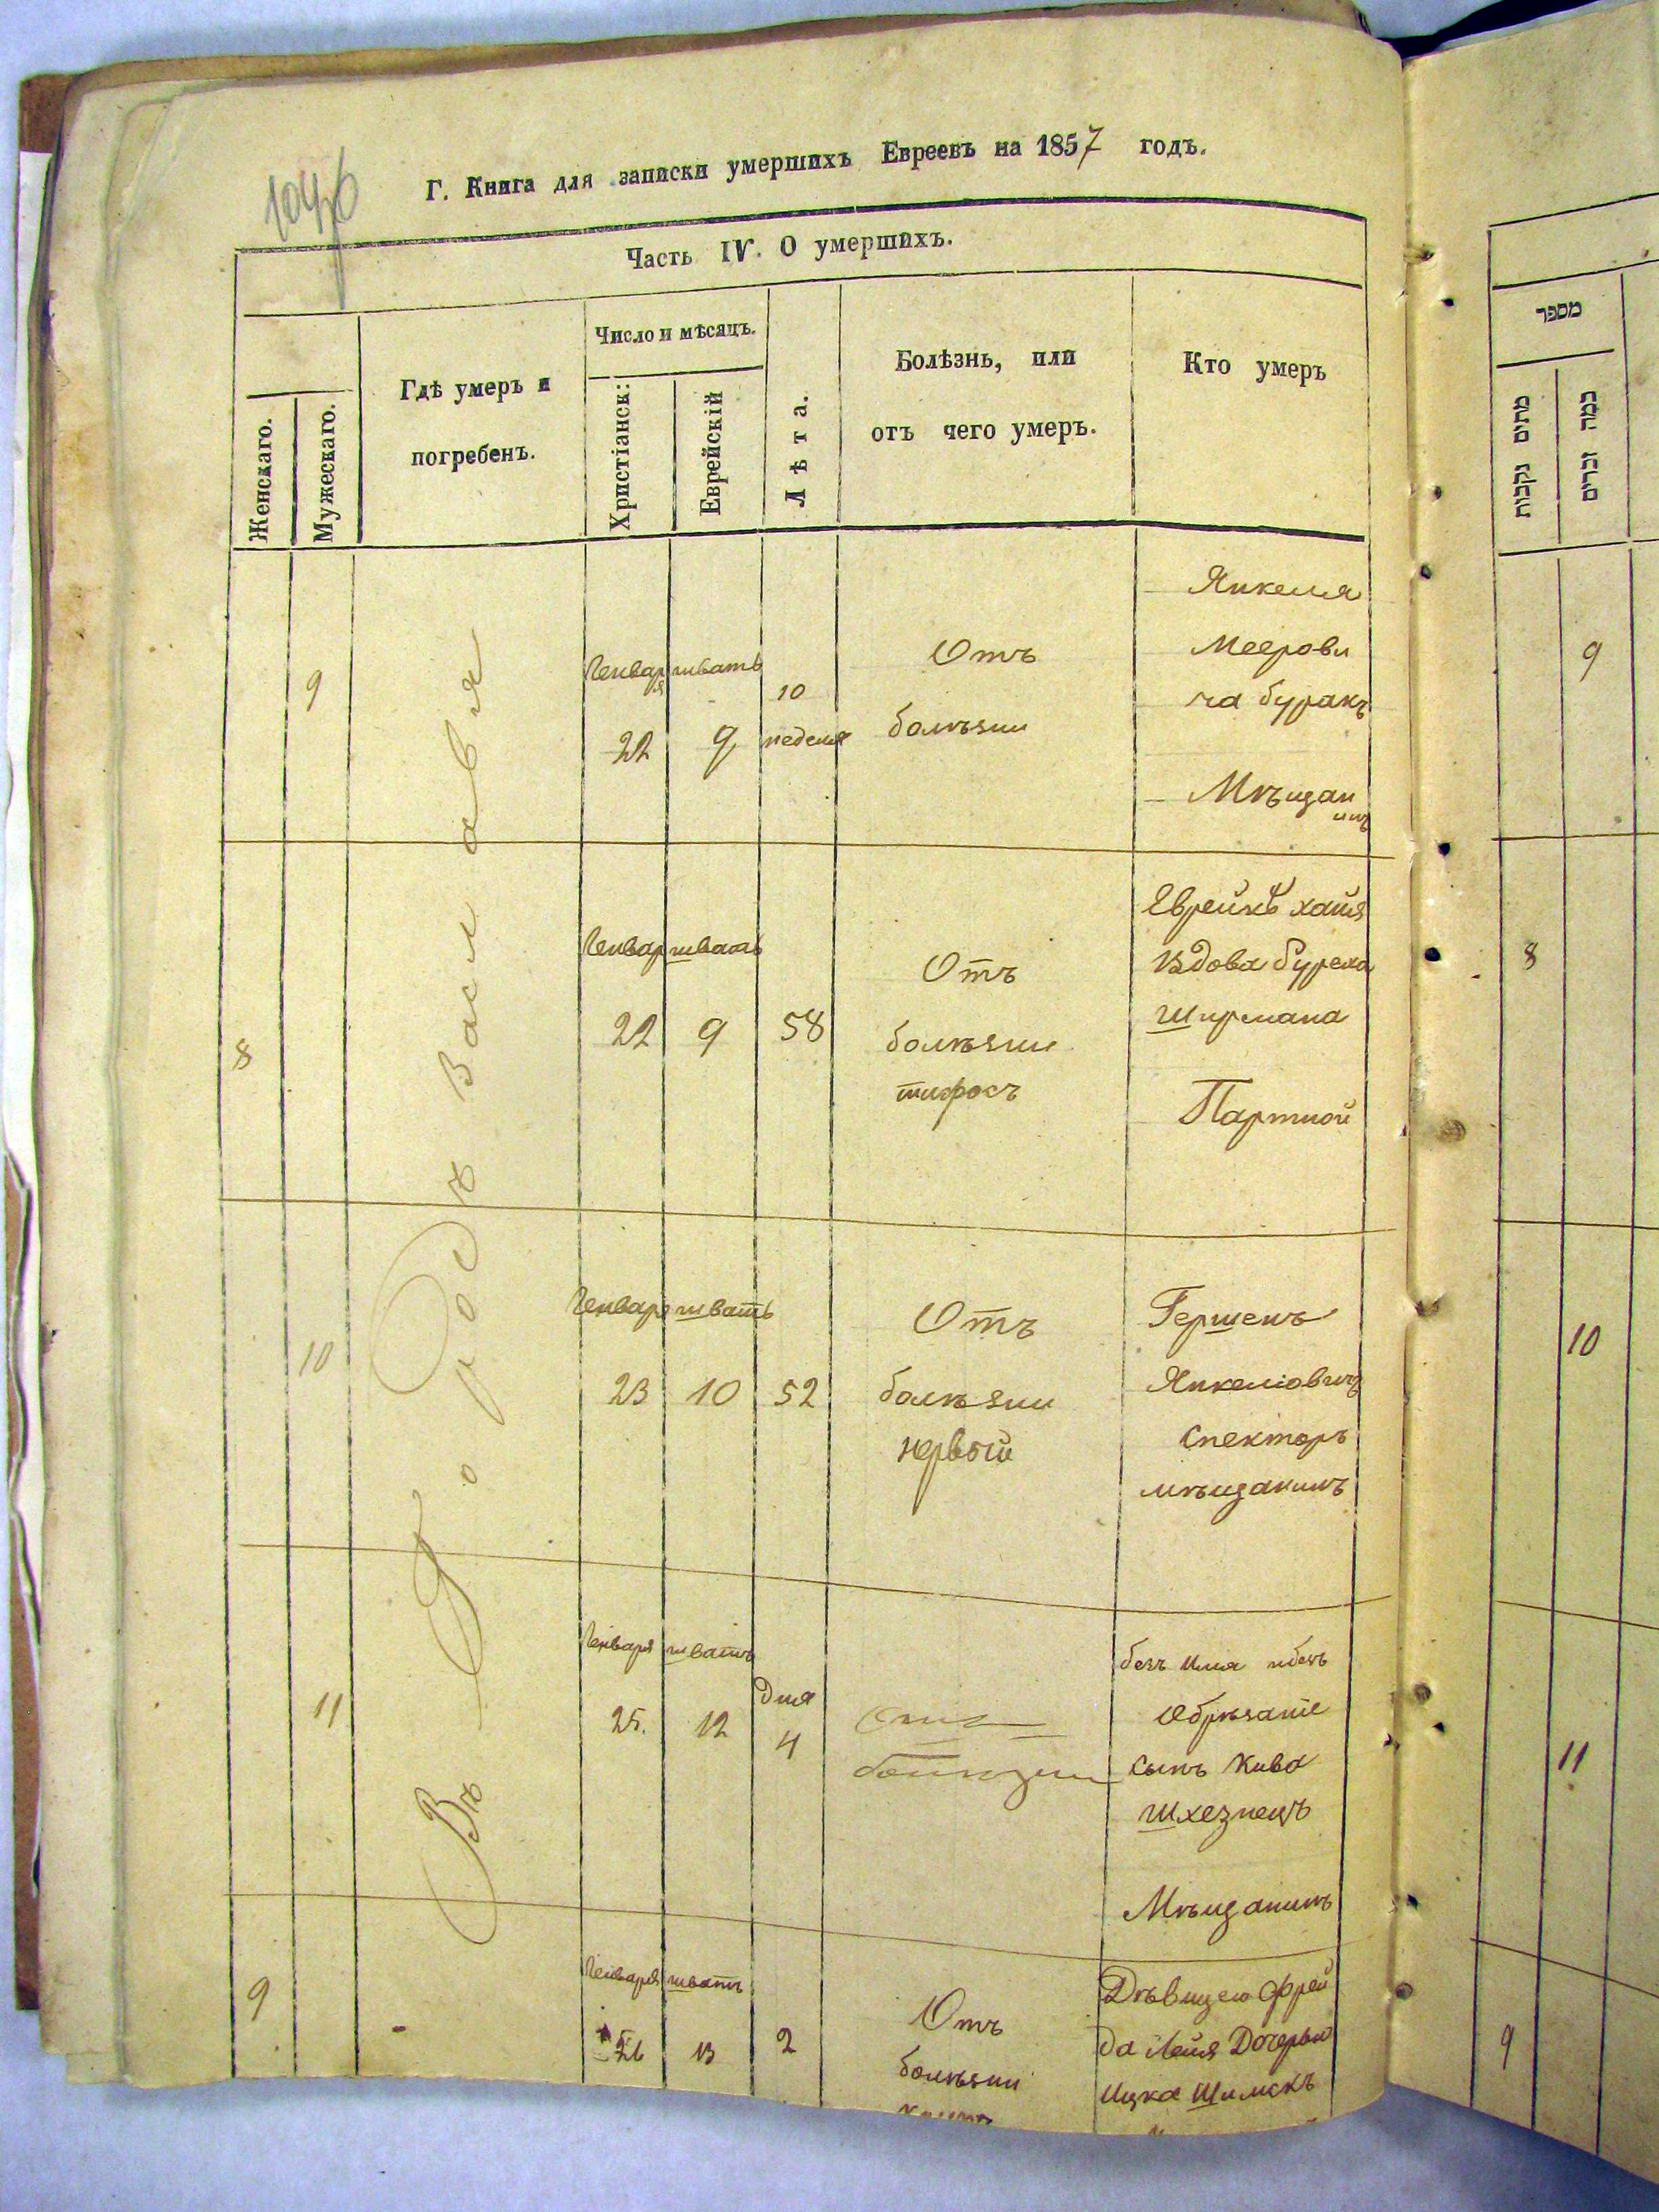 Г. Книга для записки умершихъ Евреевъ на 1857 годъ.
Часть IV. О умершихъ.
Женскаго.
Мужескаго.
Гдѣ умеръ и
погребенъ.
Число и мѣсяцъ.
Христіанск:
Еврейскій
Лѣта.
Болѣзнь, или
отъ чего умеръ.
Кто умеръ
Въ Городѣ
9
Генваря
22
шватъ
9
10
неделя
Отъ
болѣзни
Янкеля
Меерови
ча буракъ
Мѣщан
инъ
8
Генвар
22
шватъ
9
58
Отъ
болѣзни
тифосъ
Еврейкѣ хаия
Вдова
Партной
10
Генваря
23
шватъ
10
52
Отъ
болѣзни
нервой
Гершенъ
Янкеліовичъ
Спекторъ
мѣщанинъ
11
Генваря
25.
шватъ
12
Дня
4
Отъ
болѣзни
безъ имя
Обрѣзаніе
сынъ Кива
Мѣщанинъ
9
Генваря
26
шватъ
13
2
Отъ
болѣзни
Дѣвицею Фрей
да Лейя Дочерью
Ицка
מספר
מתים נקבות
כמה זכרים
9
8
10
11
9